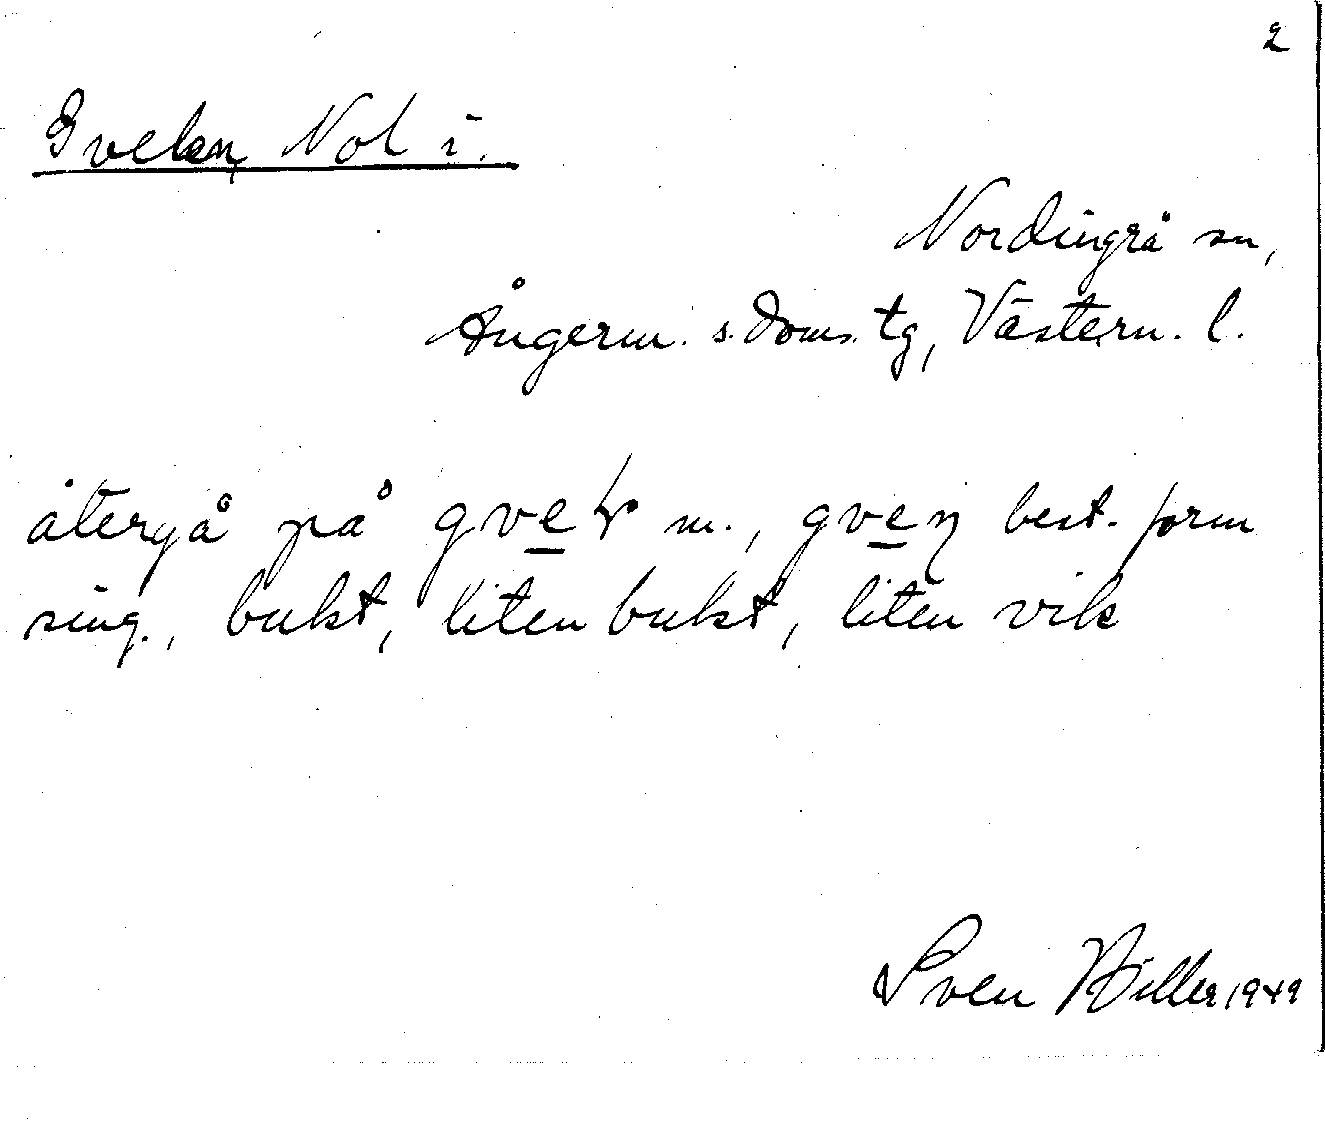 2
Gvelen, Nol i.
Nordingrå sn,
Ångerm. s. doms. tg, Västern. l.
återgå på gve m., gveŋ best. form
sing., bukt, liten bukt, liten vik
Sven Hiller 1949